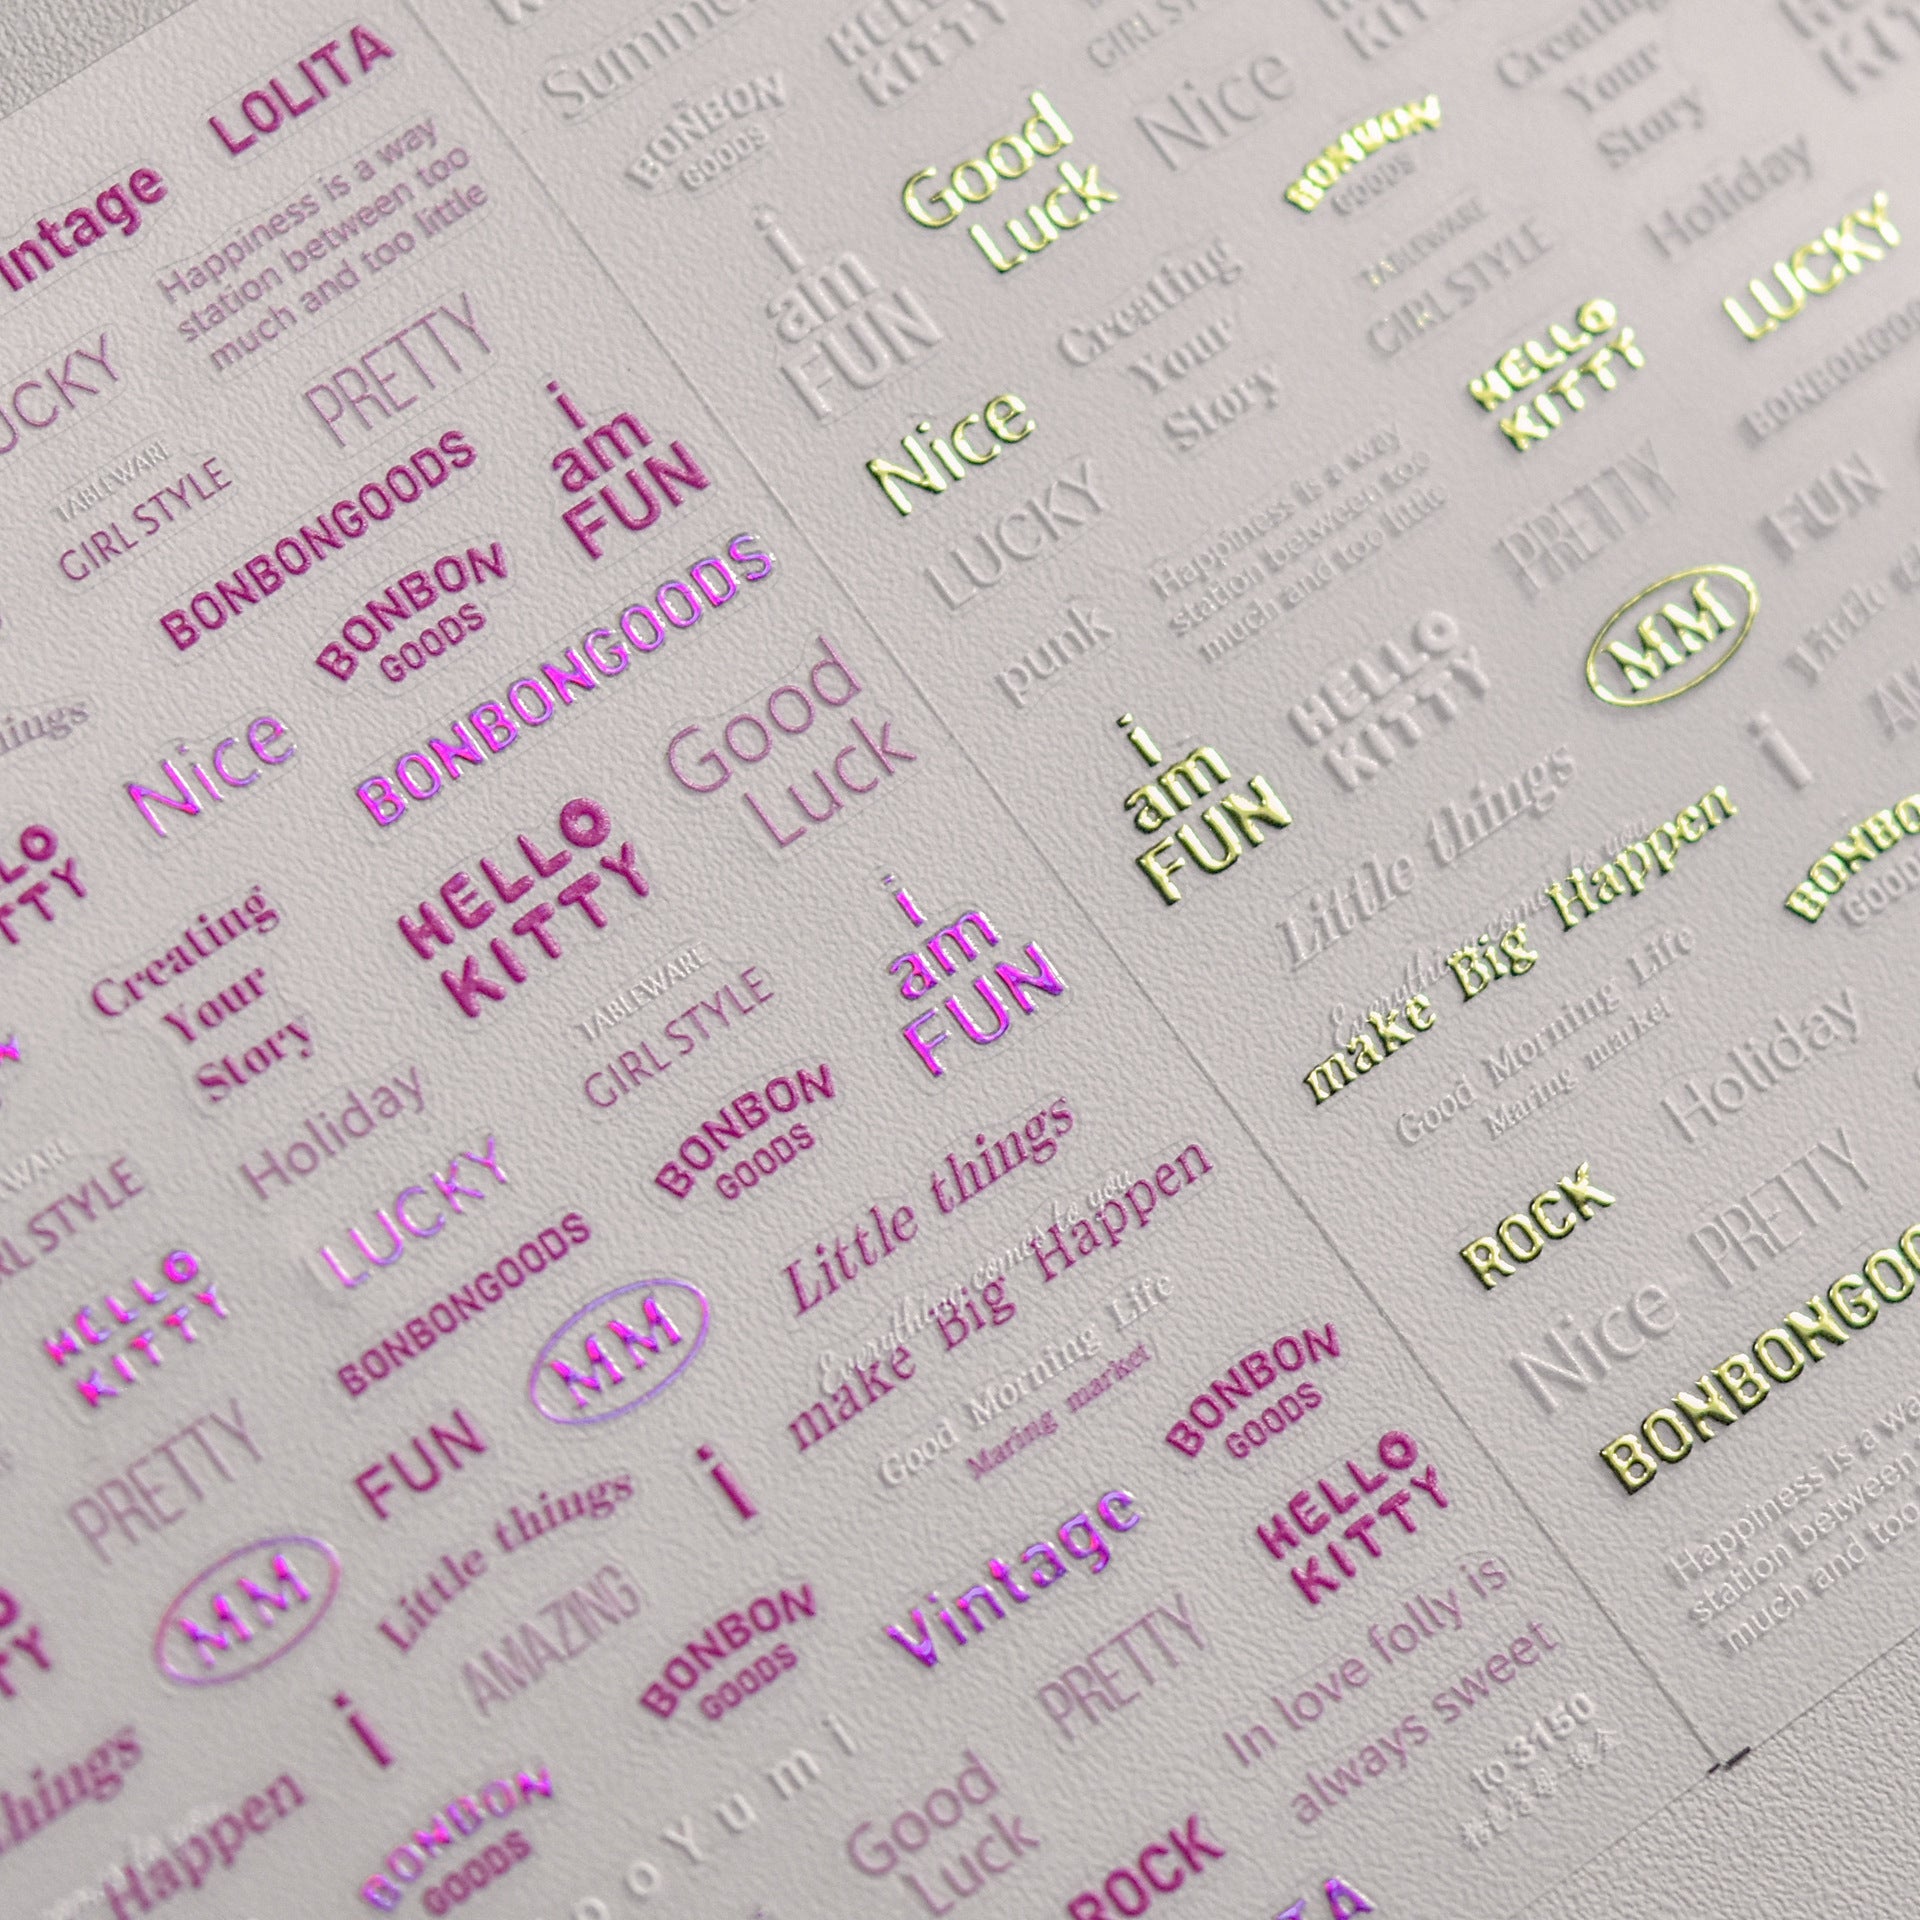 LOLITA
intage
Happiness is a way
station between too
much and too little
UCKY
PRETTY
TABLEWARE
GIRL STYLE
BONBONGOODS
i
am
FUN
BONBON
GOODS
BONBONGOODS
Nice
Good
Luck
HELLO
KITTY
Creating
Your
Story
TABLEWARE
GIRL STYLE
i
am
FUN
Holiday
BONBON
GOODS
LUCKY
STYLE
HELLO
KITTY
BONBONGOODS
MM
Little things
Everything comes to you
make Big Happen
Good Morning Life
Maring market
PRETTY
FUN
BONBON
GOODS
i
Little things
HELLO
KITTY
MM
AMAZING
Vintage
BONBON
GOODS
PRETTY
In love folly is
always sweet
i
things
Happen
BONBON
GOODS
o Y u m i
Good
Luck
ROCK
to 3150
Summe
HELLO
KITTY
BONBON
GOODS
Good
Luck
Nice
BONBON
GOODS
Creating
Your
Story
i
am
FUN
Creating
Your
Story
TABLEWARE
GIRL STYLE
Holiday
LUCKY
HELLO
KITTY
BONBONGOO
Nice
LUCKY
Happiness is a way
station between too
much and too little
PRETTY
FUN
punk
HELLO
KITTY
MM
i
am
FUN
Little things
i
make Big Happen
Good Morning Life
Maring market
BONBO
GOOD
Holiday
ROCK
PRETTY
Nice
BONBONGOO
Happiness is a wa
station between
much and too